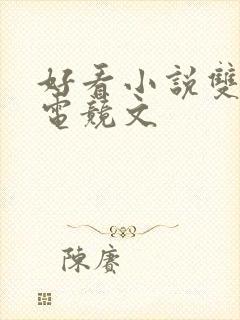 好看小說雙
電競文
陳賡